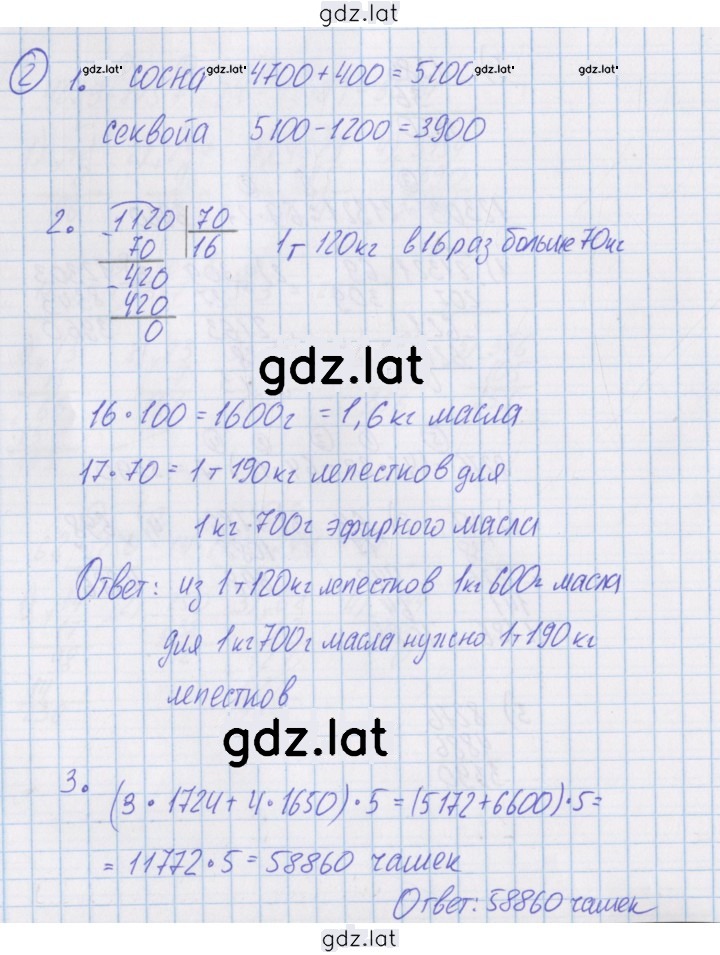 gdz.lat
② 1. gdz.lat сосна gdz.lat 4700 + 400 = 5100 gdz.lat gdz.lat
секвойа 5100 - 1200 = 3900
2. - 1120 | 70
70 16 1т 120кг в 16 раз больше 70кг
- 420
420
0
gdz.lat
16 · 100 = 1600г = 1,6 кг масла
17 · 70 = 1т 190кг лепестков для
1кг 700г эфирного масла
Ответ: из 1т 120кг лепестков 1кг 600г масла
для 1кг 700г масла нужно 1т 190кг
лепестков
gdz.lat
3. (3 · 1724 + 4 · 1650) · 5 = (5172 + 6600) · 5 =
= 11772 · 5 = 58860 чашек
Ответ: 58860 чашек
gdz.lat